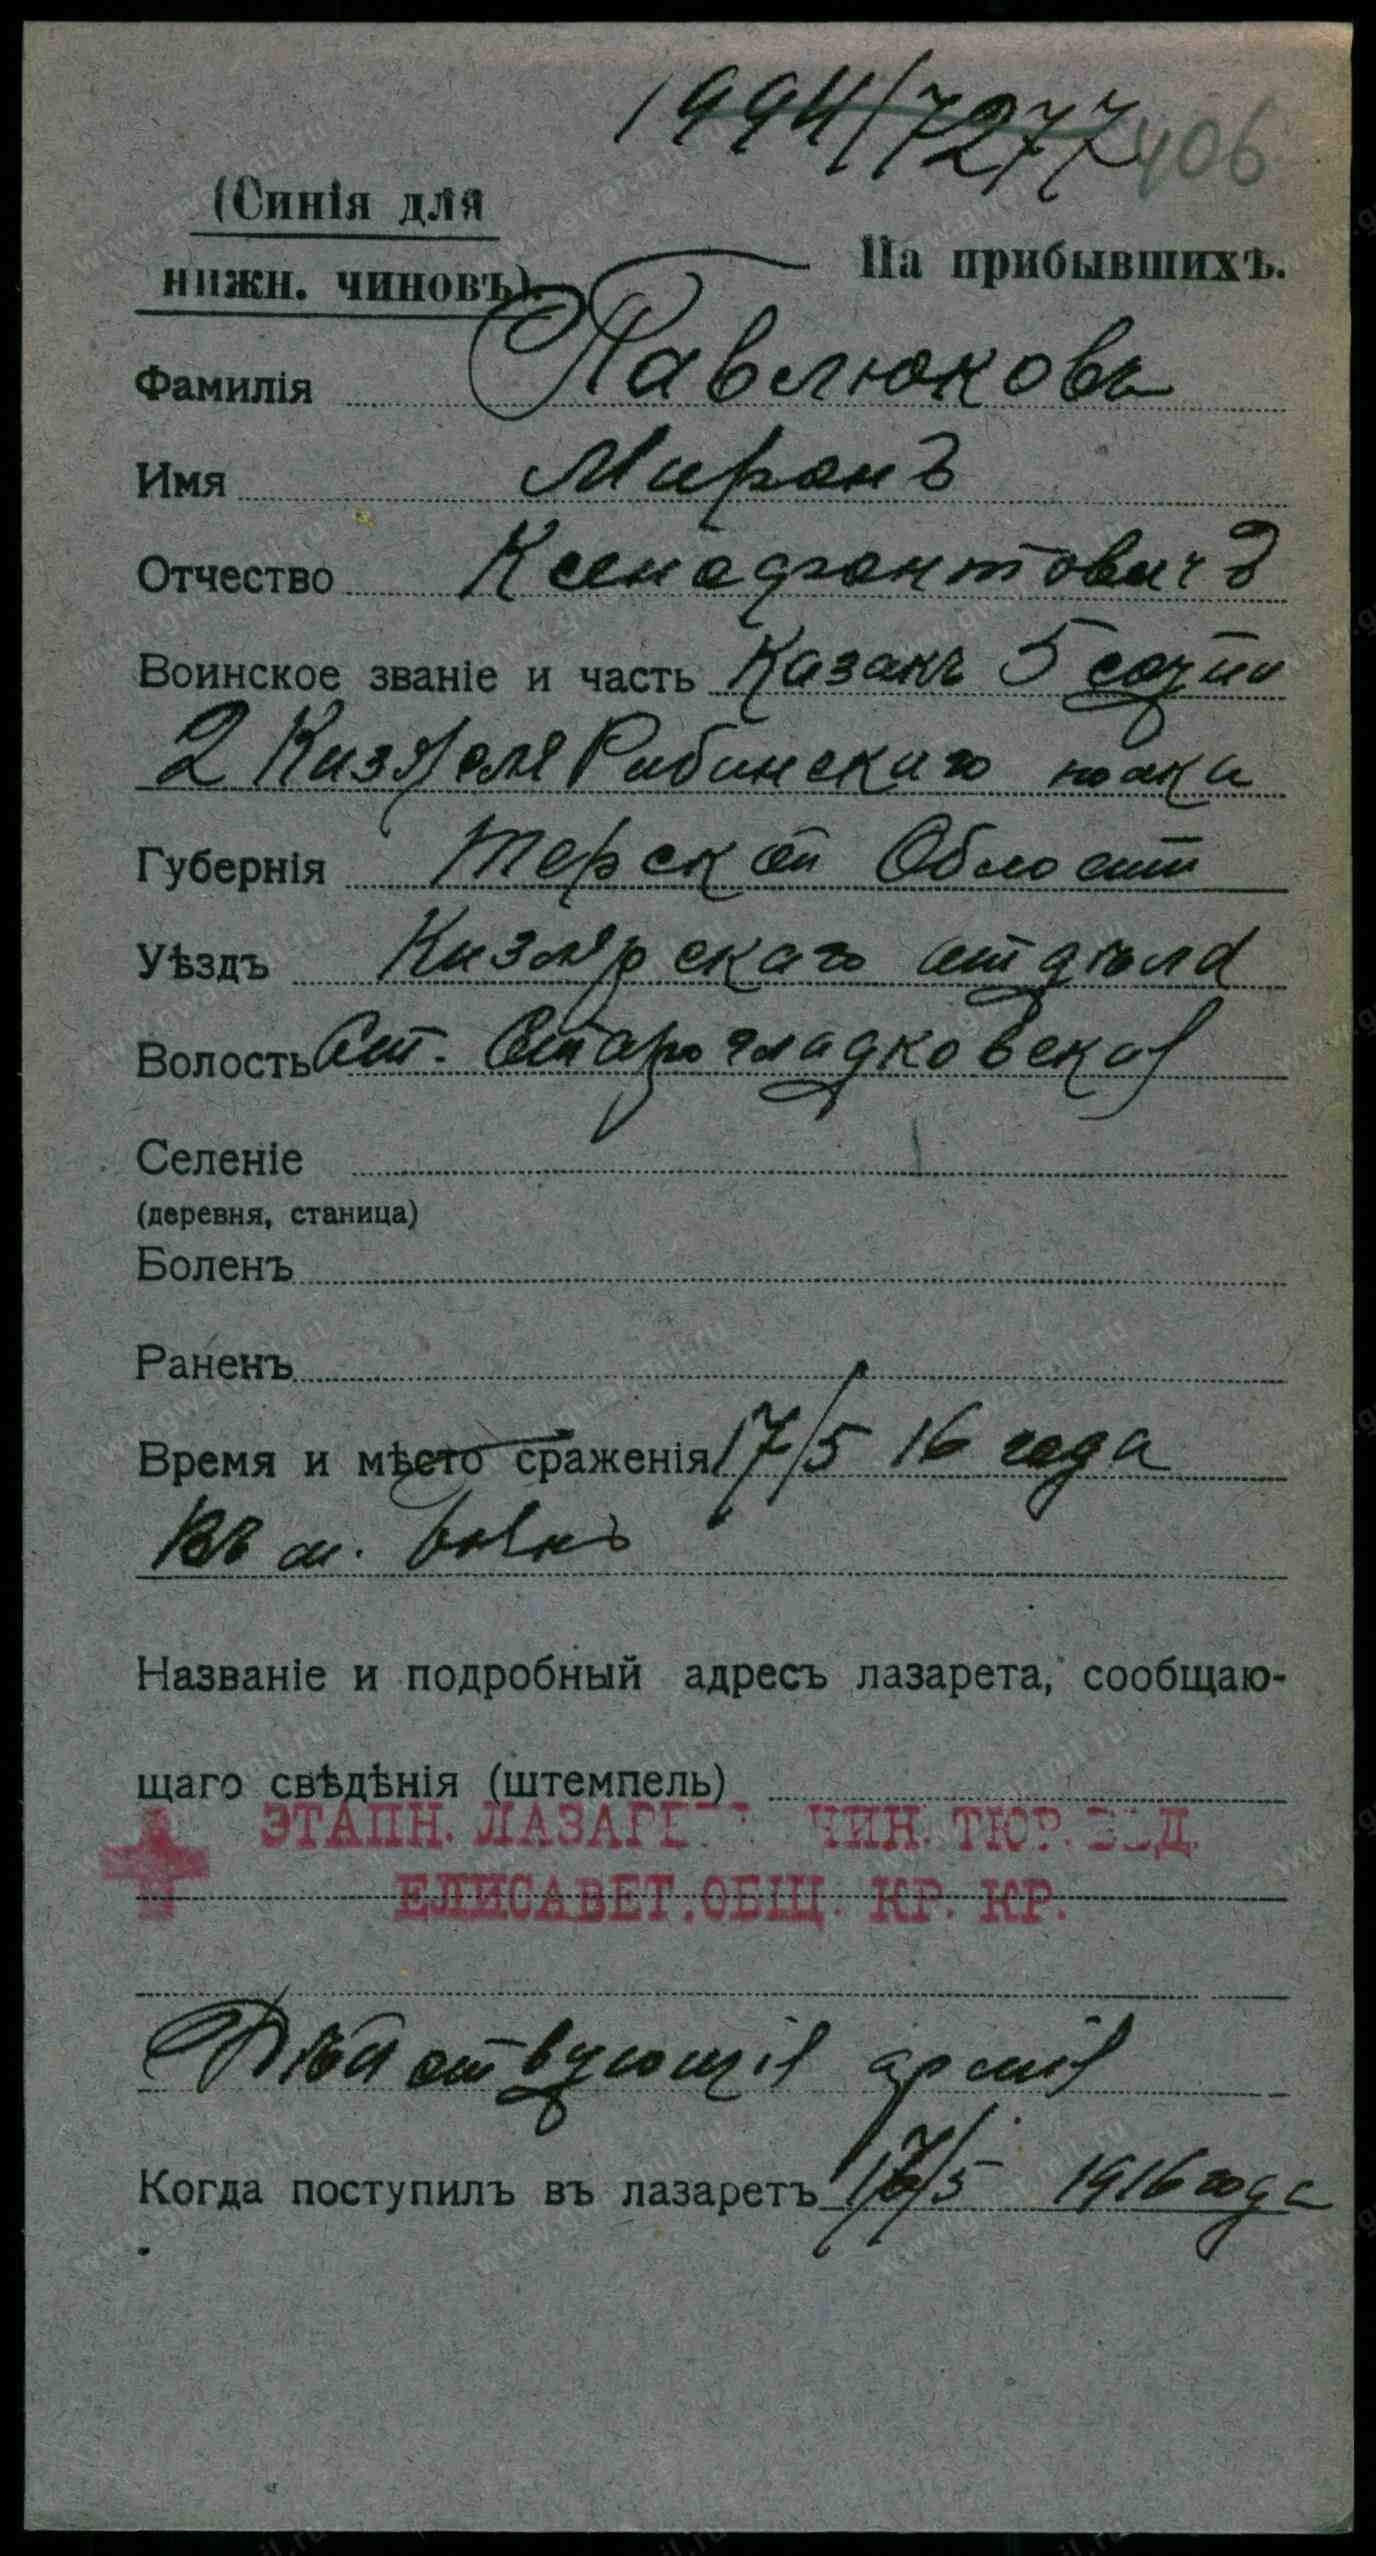 1994/7277 406
(Синія для
нижн. чиновъ).
На прибывшихъ.
Фамилія Павлюковъ
Имя Миронъ
Отчество Ксенафонтовичъ
Воинское званіе и часть Казакъ 5 сотни
2 Кизляро полка
Губернія Терской Области
Уѣздъ Кизлярскаго отдѣла
Волость Ст. Старогладковской
Селеніе
(деревня, станица)
Боленъ
Раненъ
Время и мѣсто сраженія 17/5 16 года
Въ м.
Названіе и подробный адресъ лазарета, сообщаю-
щаго свѣдѣнія (штемпель)
ЭТАПН. ЛАЗАРЕ ЧИН. ТЮР. ВѢД.
ЕЛИСАВЕТ. ОБЩ. КР. КР.
Дѣйствующій армій
Когда поступилъ въ лазаретъ 17/5 1916 года